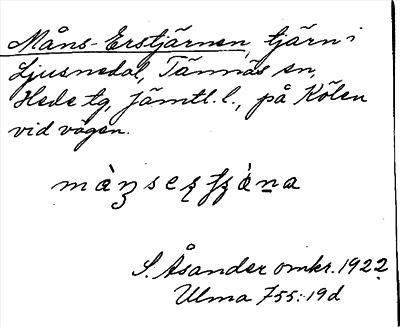 Måns-Erstjärnen, tjärn i
Ljusnedal, Tännäs sn,
Hede tg, Jämtl. l., på Kölen
vid vägen.
S. Åsander omkr. 1922
Ulma 755:19d